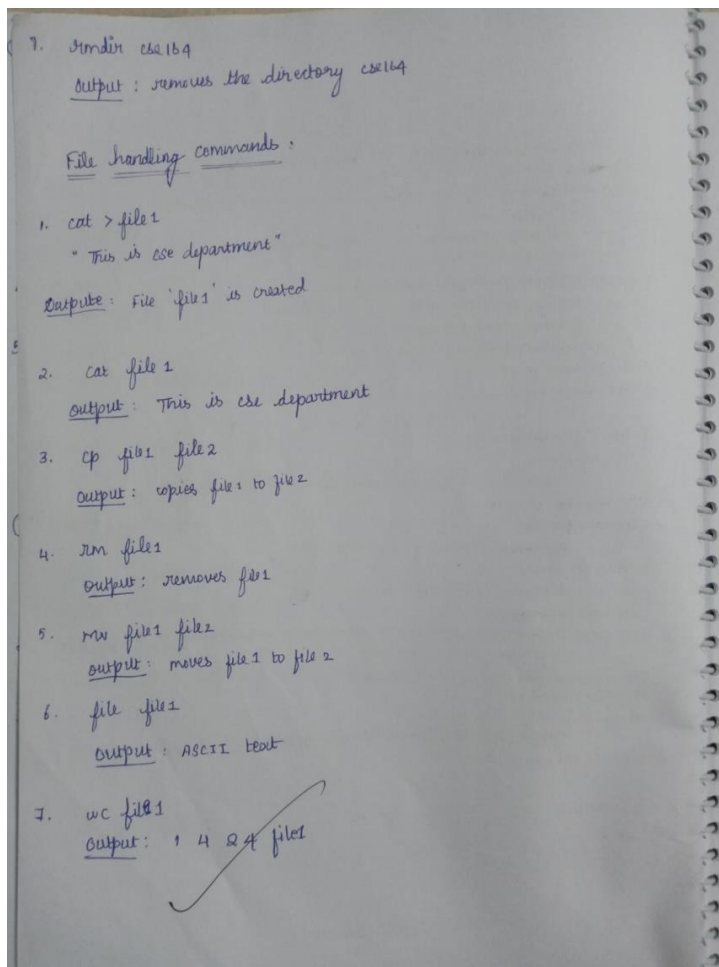 7. rmdir cse1b4
Output : removes the directory cse1b4
File handling commands :
1. cat > file1
" This is cse department "
Outpute : File 'file1' is created
2. cat file 1
Output : This is cse department
3. cp file1 file2
Output : copies file1 to file2
4. rm file1
Output : removes file1
5. mv file1 file2
Output : moves file 1 to file 2
6. file file1
Output : ASCII text
7. wc file1
Output : 1 4 24 file1